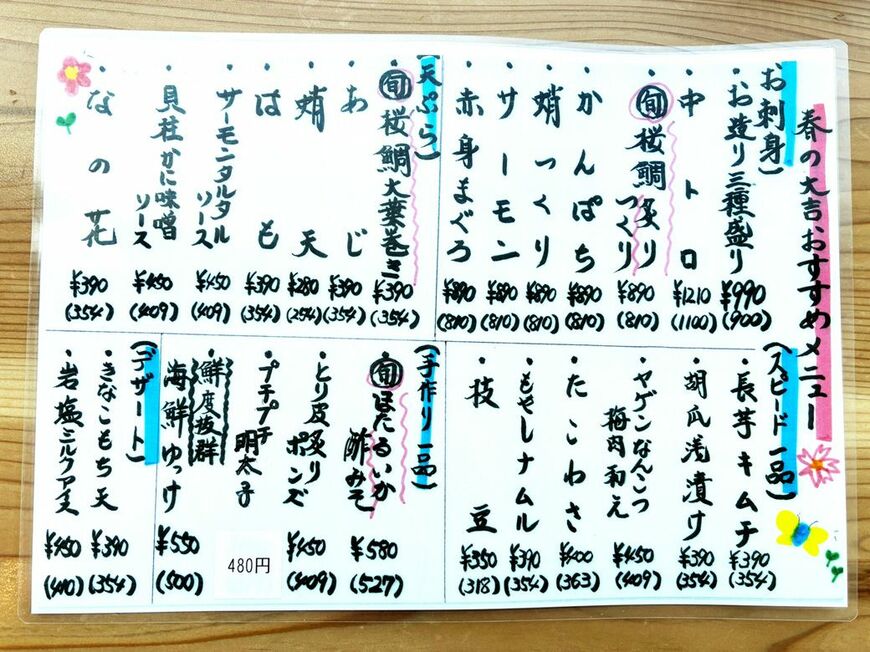 春の大吉おすすめメニュー
お刺身)
・お造り三種盛り ¥990 (900)
・中トロ ¥1210 (1100)
・旬 桜鯛炙りつくり ¥890 (810)
・かんぱち ¥890 (810)
・蛸つくり ¥890 (810)
・サーモン ¥890 (810)
・赤身まぐろ ¥890 (810)
(天ぷら)
・旬 桜鯛大葉巻き ¥390 (354)
・あじ ¥390 (354)
・蛸天 ¥280 (254)
・はも ¥390 (354)
・サーモンタルタルソース ¥450 (409)
・貝柱かに味噌ソース ¥450 (409)
・なの花 ¥390 (354)
(スピード一品)
・長芋キムチ ¥390 (354)
・胡瓜浅漬け ¥390 (354)
・ヤゲンなんこつ梅肉和え ¥450 (409)
・たこわさ ¥400 (363)
・もやしナムル ¥390 (354)
・枝豆 ¥350 (318)
(手作り一品)
・旬 ほたるいか酢みそ ¥580 (527)
・とり皮炙りポンズ ¥450 (409)
・プチプチ明太子 480円
・鮮度抜群 海鮮ゆっけ ¥550 (500)
(デザート)
・きなこもち天 ¥390 (354)
・岩塩ミルクアイス ¥450 (410)